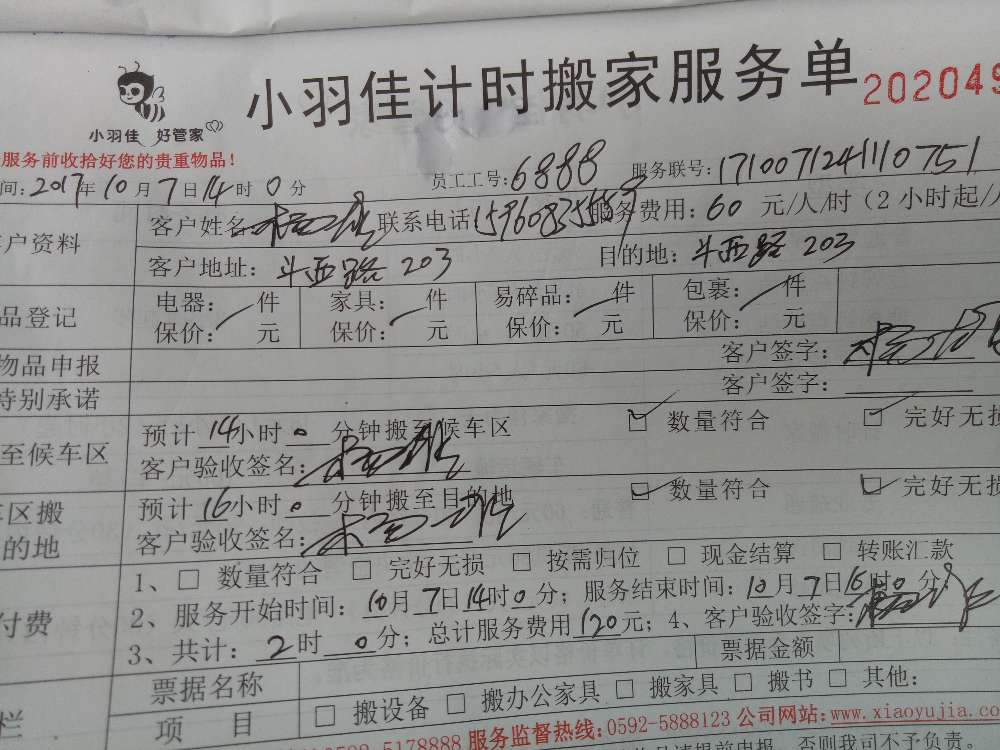 小羽佳计时搬家服务单 202049
小羽佳 好管家
服务前收拾好您的贵重物品!
间: 2017年10月7日14时0分 员工工号: 6888 服务联号: 171007124110751
户资料 客户姓名 联系电话 服务费用: 60 元/人/时(2小时起/
客户地址: 斗西路 203 目的地: 斗西路 203
品登记 电器: 件 家具: 件 易碎品: 件 包裹: 件
保价: 元 保价: 元 保价: 元 保价: 元
物品申报 客户签字:
特别承诺 客户签字:
至候车区 预计14小时0分钟搬至候车区 ☑ 数量符合 ☑ 完好无损
客户验收签名:
车区搬的地 预计16小时0分钟搬至目的地 ☑ 数量符合 ☑ 完好无损
客户验收签名:
付费 1、□ 数量符合 □ 完好无损 □ 按需归位 □ 现金结算 □ 转账汇款
2、服务开始时间: 10月7日14时0分; 服务结束时间: 10月7日16时0分;
3、共计: 2时0分; 总计服务费用120元; 4、客户验收签字:
票据名称 票据金额
栏 项 目 □ 搬设备 □ 搬办公家具 □ 搬家具 □ 搬书 □ 其他:
5178888 服务监督热线: 0592-5888123 公司网站: www.xiaoyujia.co
提前申报,否则我司不予负责。